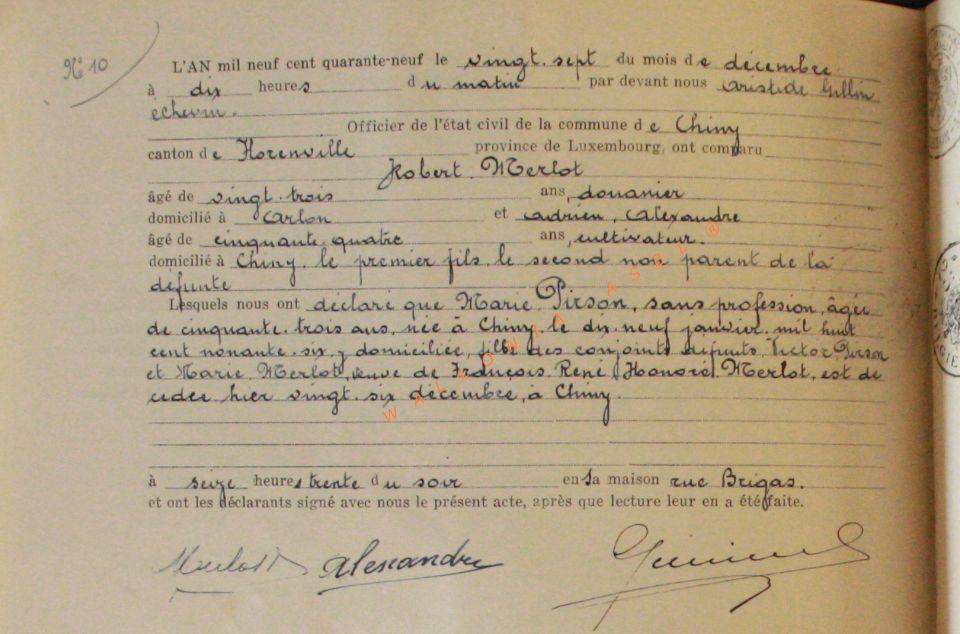 N° 10
L'AN mil neuf cent quarante-neuf le vingt-sept du mois de décembre
à dix heures du matin par devant nous Aristide Gillin
echevin.
Officier de l'état civil de la commune de Chiny
canton de Florenville province de Luxembourg, ont comparu
Robert Merlot
âgé de vingt-trois ans, douanier
domicilié à Arlon et Adrien Alexandre
âgé de cinquante-quatre ans, cultivateur.
domicilié à Chiny, le premier fils, le second non parent de la
défunte
Lesquels nous ont déclaré que Marie Pirson, sans profession, âgée
de cinquante-trois ans, née à Chiny le dix-neuf janvier mil huit
cent nonante-six, y domiciliée, fille des conjoints défunts Victor Pirson
et Marie Merlot, veuve de François René Honoré Merlot, est dé
cédée hier vingt-six décembre, à Chiny.
à seize heures trente du soir en sa maison rue Brigas.
et ont les déclarants signé avec nous le présent acte, après que lecture leur en a été faite.
Merlot Alexandre